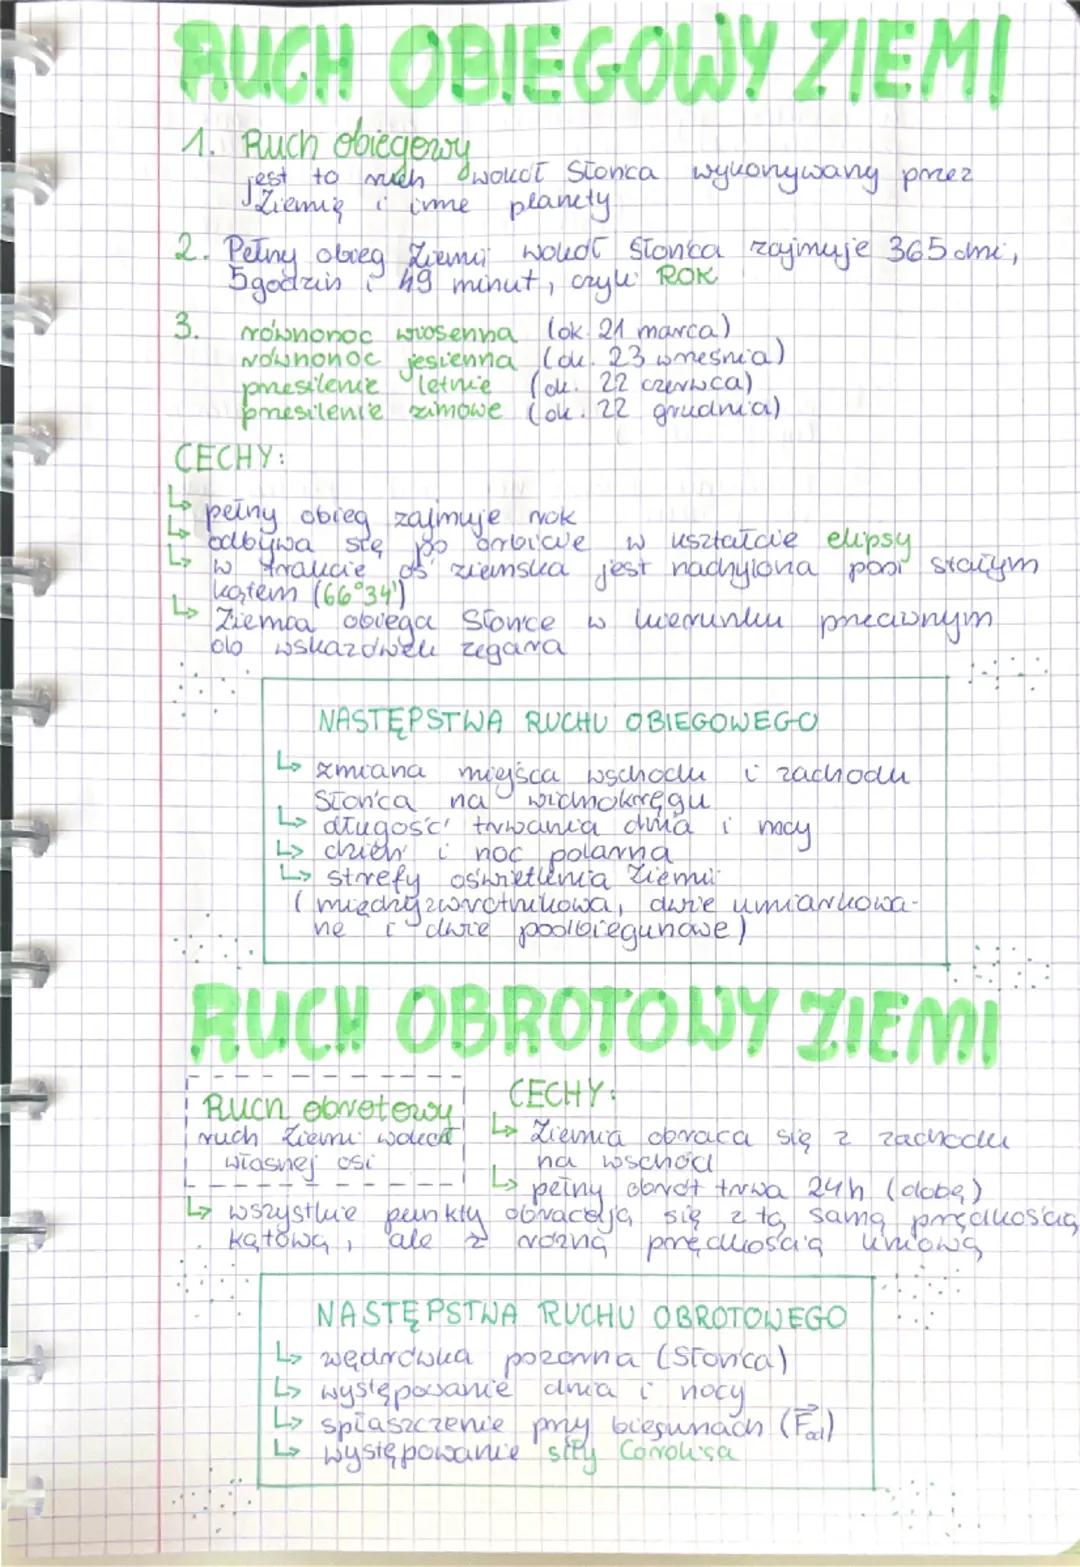 RUCH OBIEGOWY ZIEMI
1. Ruch obiegowy
jest to ruch wokół Słońca wykonywany przez
Ziemię i inne planety
2. Pełny obieg Ziemi wokół Słońca zajmuje 365 dni,
5 godzin i 49 minut, czyli ROK
3. równonoc wiosenna (ok. 21 marca)
równonoc jesienna (ok. 23 września)
przesilenie letnie (ok. 22 czerwca)
przesilenie zimowe (ok. 22 grudnia)
CECHY:
↳ pełny obieg zajmuje rok
↳ odbywa się po orbicie w kształcie elipsy
↳ w trakcie oś ziemska jest nachylona pod stałym
kątem (66°34')
↳ Ziemia obiega Słońce w kierunku przeciwnym
do wskazówek zegara
NASTĘPSTWA RUCHU OBIEGOWEGO
↳ zmiana miejsca wschodu i zachodu
Słońca na widnokręgu
↳ długość trwania dnia i nocy
↳ dzień i noc polarna
↳ strefy oświetlenia Ziemi
(międzyzwrotnikowa, dwie umiarkowa-
ne i dwie podbiegunowe)
RUCH OBROTOWY ZIEMI
Ruch obrotowy
ruch Ziemi wokół
własnej osi
CECHY:
↳ Ziemia obraca się z zachodu
na wschód
↳ pełny obrót trwa 24h (dobę)
↳ wszystkie punkty obracają się z tą samą prędkością
kątową, ale z różną prędkością liniową
NASTĘPSTWA RUCHU OBROTOWEGO
↳ wędrówka pozorna (Słońca)
↳ występowanie dnia i nocy
↳ spłaszczenie przy biegunach (F⃗od)
↳ występowanie siły Coriolisa